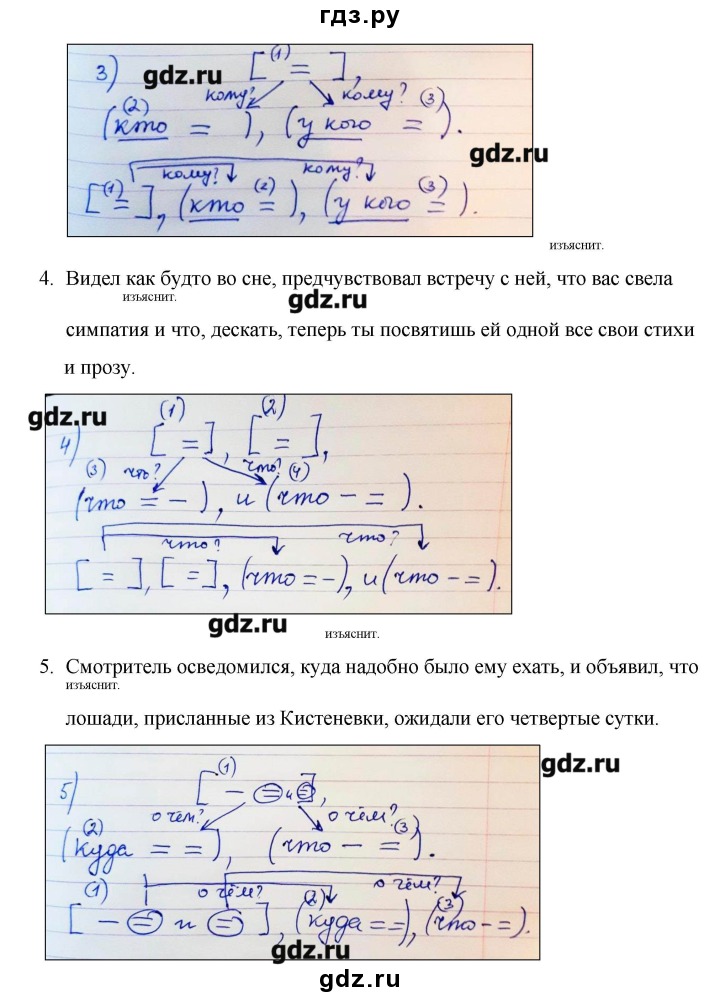 гдз.ру
3) [(1) = ],
gdz.ru
кому? кому?
(2) (3)
(кто = ), (у кого = ).
gdz.ru
кому? кому?
[(1) = ], (кто (2) = ), (у кого (3) = ).
изъяснит.
4. Видел как будто во сне, предчувствовал встречу с ней, что вас свела
изъяснит.
gdz.ru
симпатия и что, дескать, теперь ты посвятишь ей одной все свои стихи
и прозу.
gdz.ru
(1) (2)
4) [ = ], [ = ],
(3) что? что? (4)
(что = – ), и (что – = ).
что? что?
[ = ], [ = ], (что = –), и (что – =).
gdz.ru
изъяснит.
5. Смотритель осведомился, куда надобно было ему ехать, и объявил, что
изъяснит.
лошади, присланные из Кистеневки, ожидали его четвертые сутки.
(1)
gdz.ru
5) [ – = и = ],
о чём? о чём?
(2) (3)
(куда = = ), (что – = ).
(1) о чём? (2) о чём? (3)
[ – = и = ], (куда = =), (что – =).
gdz.ru
gdz.ru